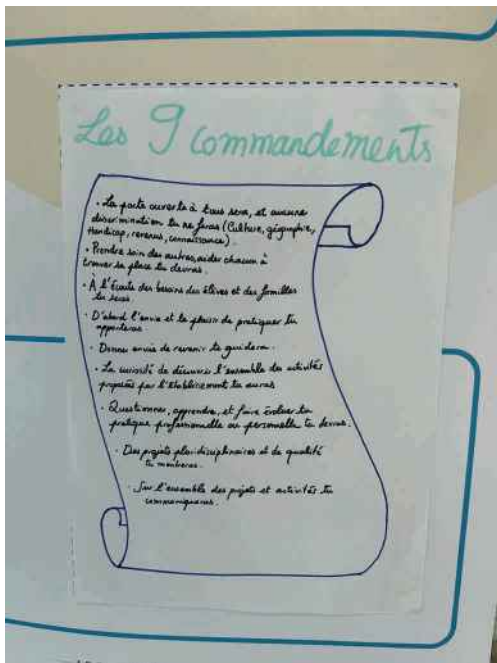 Les 9 commandements
• La porte ouverte à tous sera, et aucune
discrimination tu ne feras (Culture, géographie,
Handicap, revenus, connaissance).
• Prendre soin des autres, aider chacun à
trouver sa place tu devras.
• À l'Écoute des besoins des élèves et des familles
tu seras
• D'abord l'envie et le plaisir de pratiquer tu
apporteras.
• Donner envie de revenir te guidera.
• La curiosité de découvrir l'ensemble des activités
proposées par l'établissement tu auras
• Questionner, apprendre, et faire évoluer ta
pratique professionnelle ou personnelle tu devras.
• Des projets pluridisciplinaires et de qualité
tu monteras.
• Sur l'ensemble des projets et activités tu
communiqueras.